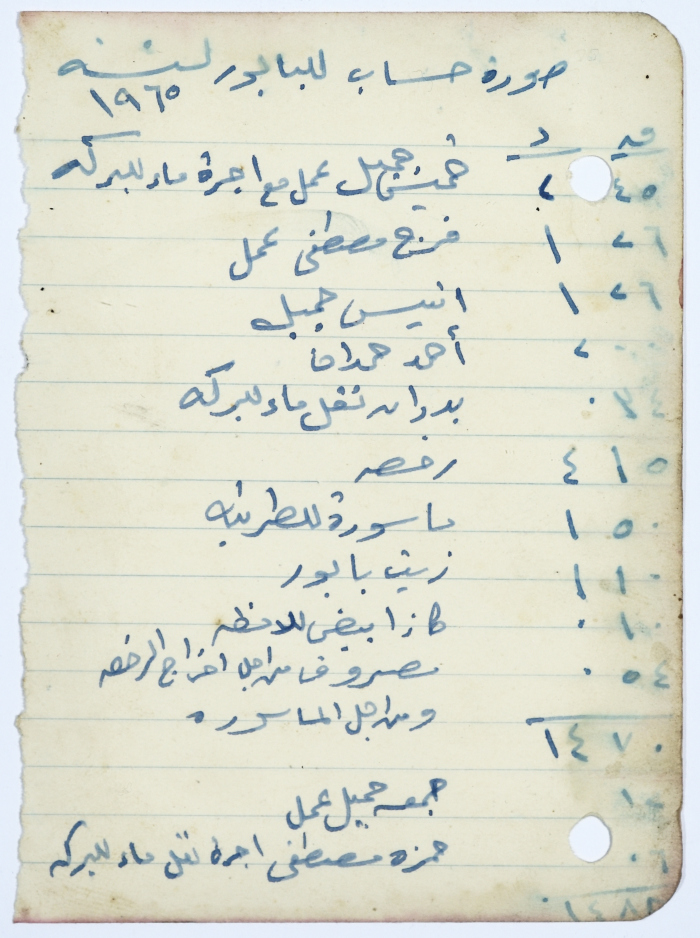 صورة حساب للبابور لسنة
١٩٦٥
د
٤٥ ٢ خميس جميل عمل مع اجرة ماء للبركه
٢٦ ١ فرج مصطفى عمل
٢٦ ١ انيس جميل
٠٠ ٢ أحمد حمدان
٣٤ ٠ بدران نقل ماء للبركه
١٥ ٤ رخصه
٥٠ ١ ماسورة للطرمبه
١٠ ١ زيت بابور
١٠ ٠ كاز ابيض للاحظه
٥٤ ٠ مصروف من اجل اخراج الرخصه
ومن اجل الماسوره
٧٠ ١٤
١٠ جمعه جميل عمل
٠٦ حمزه مصطفى اجرة نقل ماء للبركه